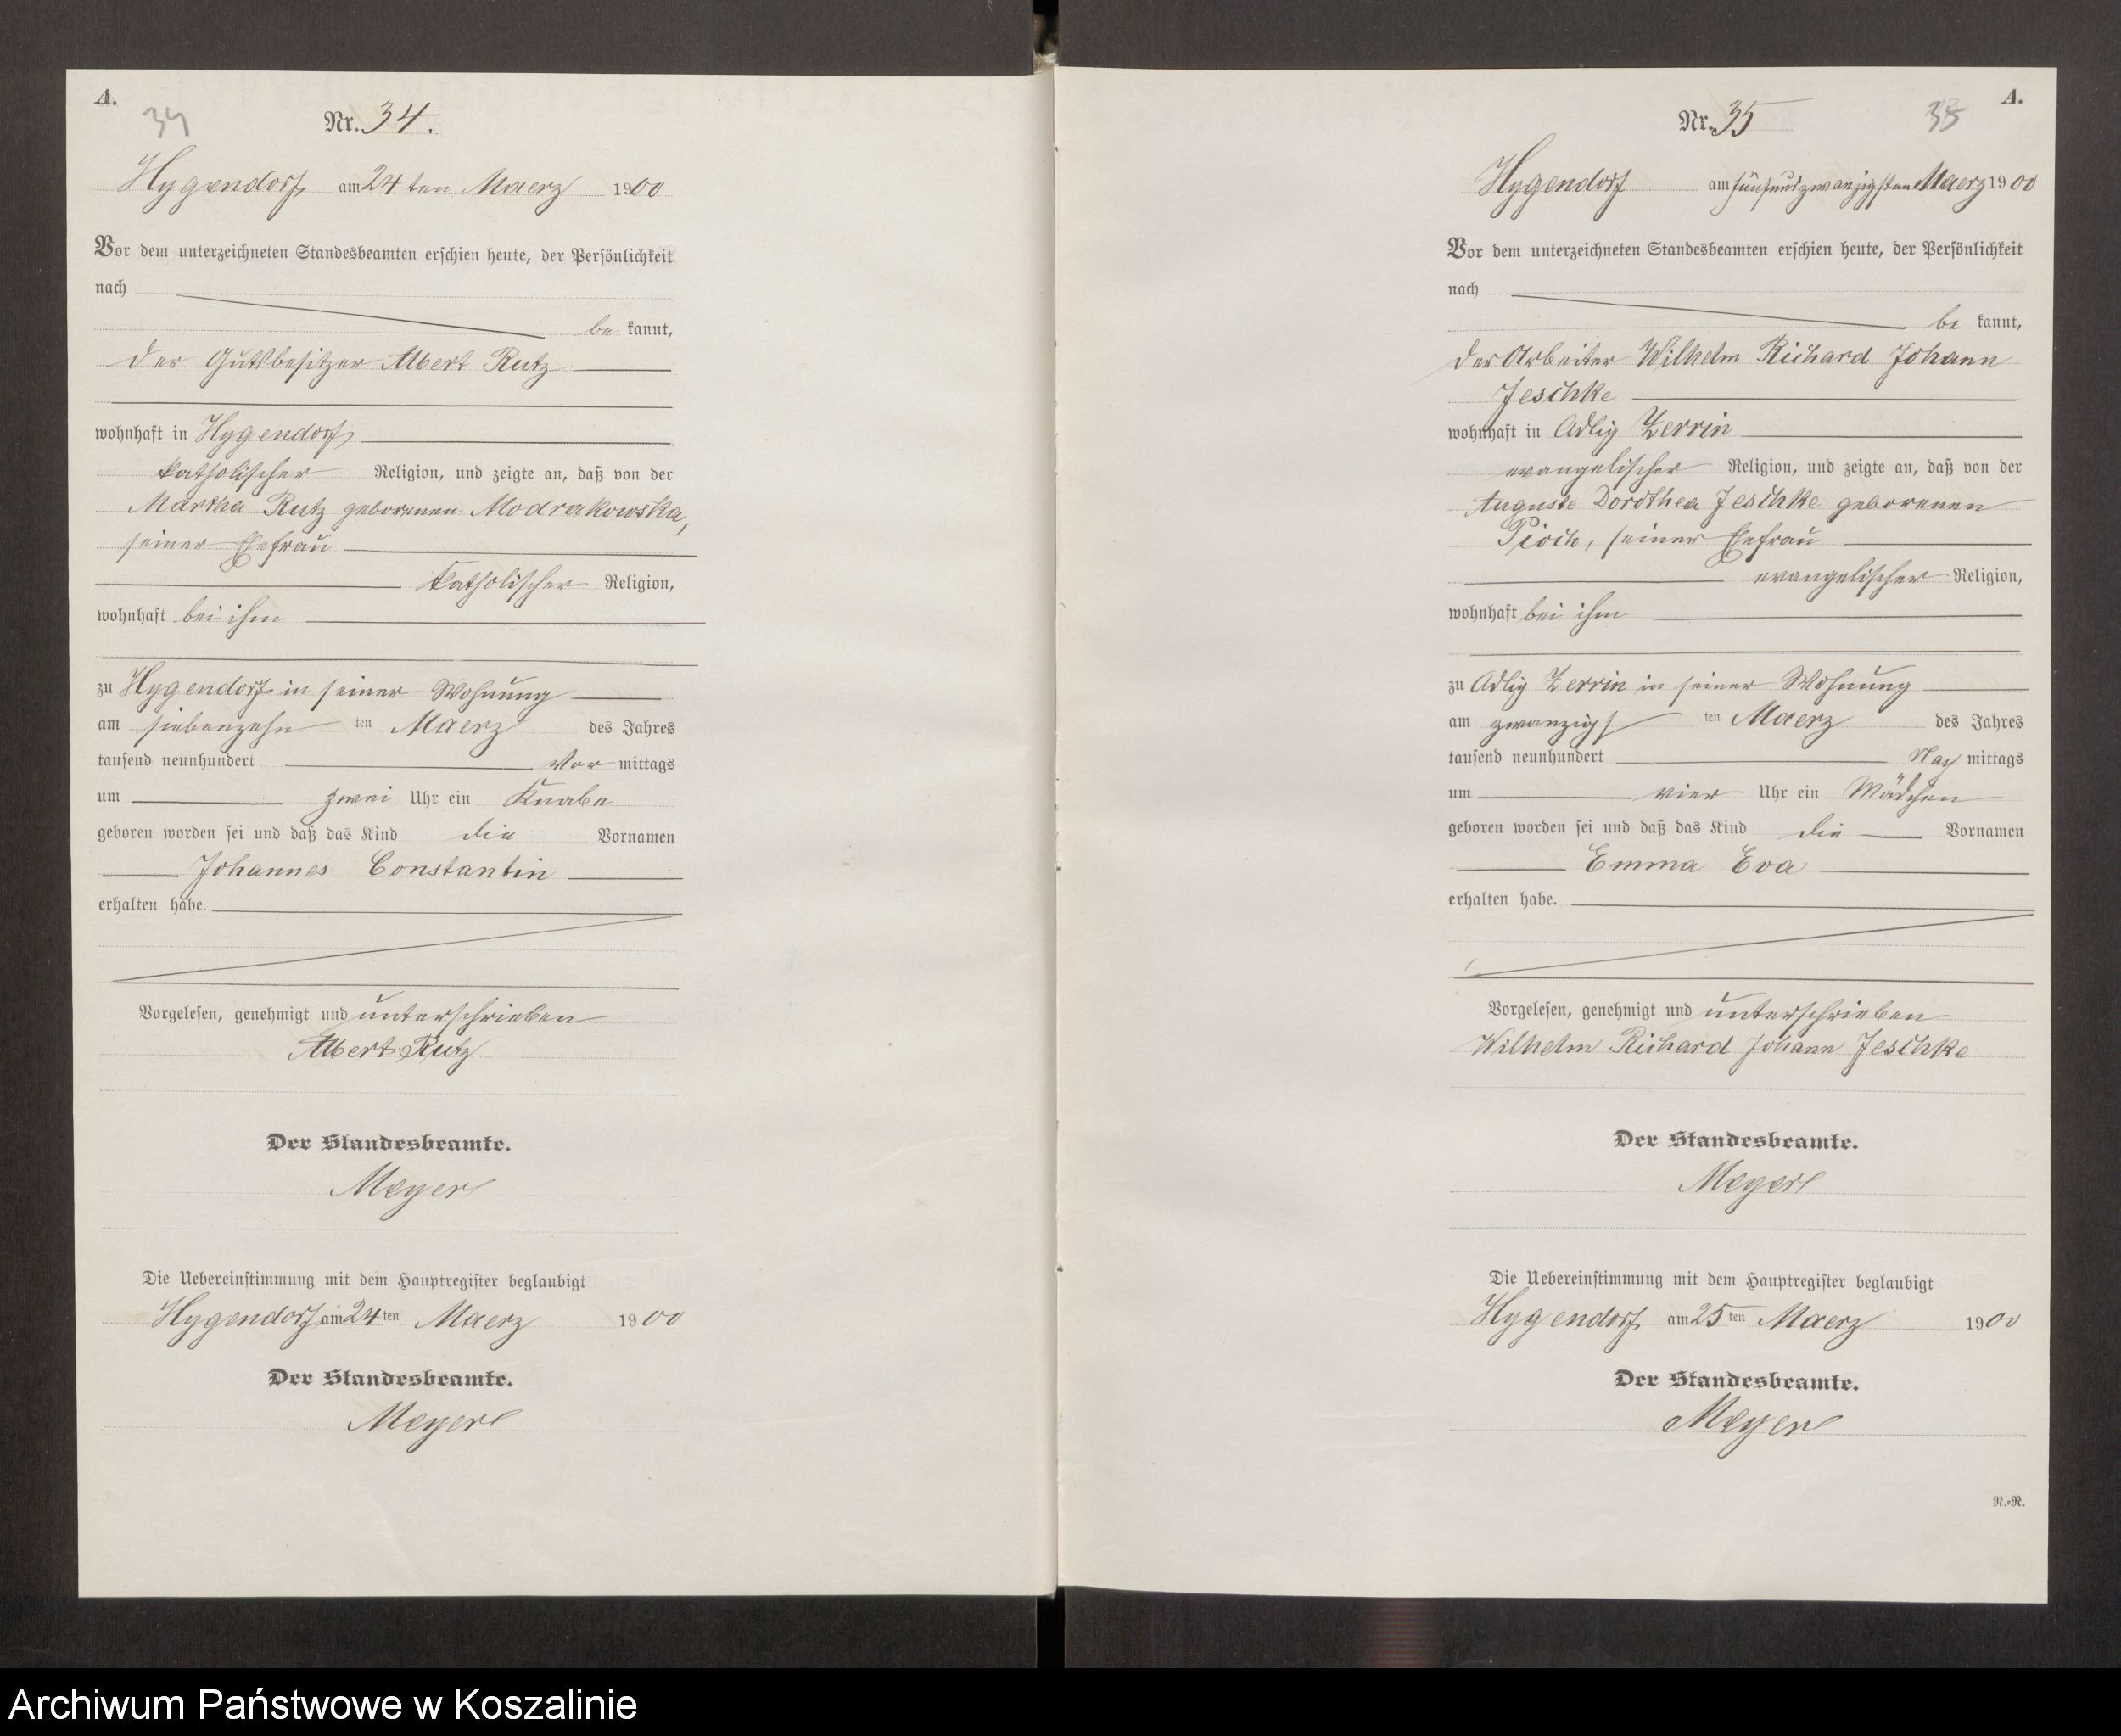 A.
34
Nr. 34.
Hygendorf am 24 ten Maerz 1900
Vor dem unterzeichneten Standesbeamten erschien heute, der Persönlichkeit
nach
be kannt,
der Gutsbesitzer Albert Rutz
wohnhaft in Hygendorf
katholischer Religion, und zeigte an, daß von der
Martha Rutz geborenen Modrakowska,
seiner Ehefrau
katholischer Religion,
wohnhaft bei ihm
zu Hygendorf in seiner Wohnung
am siebenzehn ten Maerz des Jahres
tausend neunhundert Vor mittags
um zwei Uhr ein Knabe
geboren worden sei und daß das Kind die Vornamen
Johannes Constantin
erhalten habe.
Vorgelesen, genehmigt und unterschrieben
Albert Rutz
Der Standesbeamte.
Meyer
Die Uebereinstimmung mit dem Hauptregister beglaubigt
Hygendorf am 24 ten Maerz 1900
Der Standesbeamte.
Meyer
A.
35
Nr. 35
Hygendorf am fünfundzwanzigsten Maerz 1900
Vor dem unterzeichneten Standesbeamten erschien heute, der Persönlichkeit
nach
be kannt,
der Arbeiter Wilhelm Richard Johann
Jeschke
wohnhaft in Adlig Zerrin
evangelischer Religion, und zeigte an, daß von der
Auguste Dorothea Jeschke geborenen
Pioch, seiner Ehefrau
evangelischer Religion,
wohnhaft bei ihm
zu Adlig Zerrin in seiner Wohnung
am zwanzigs ten Maerz des Jahres
tausend neunhundert Nach mittags
um vier Uhr ein Mädchen
geboren worden sei und daß das Kind die Vornamen
Emma Eva
erhalten habe.
Vorgelesen, genehmigt und unterschrieben
Wilhelm Richard Johann Jeschke
Der Standesbeamte.
Meyer
Die Uebereinstimmung mit dem Hauptregister beglaubigt
Hygendorf am 25 ten Maerz 1900
Der Standesbeamte.
Meyer
N.=R.
Archiwum Państwowe w Koszalinie